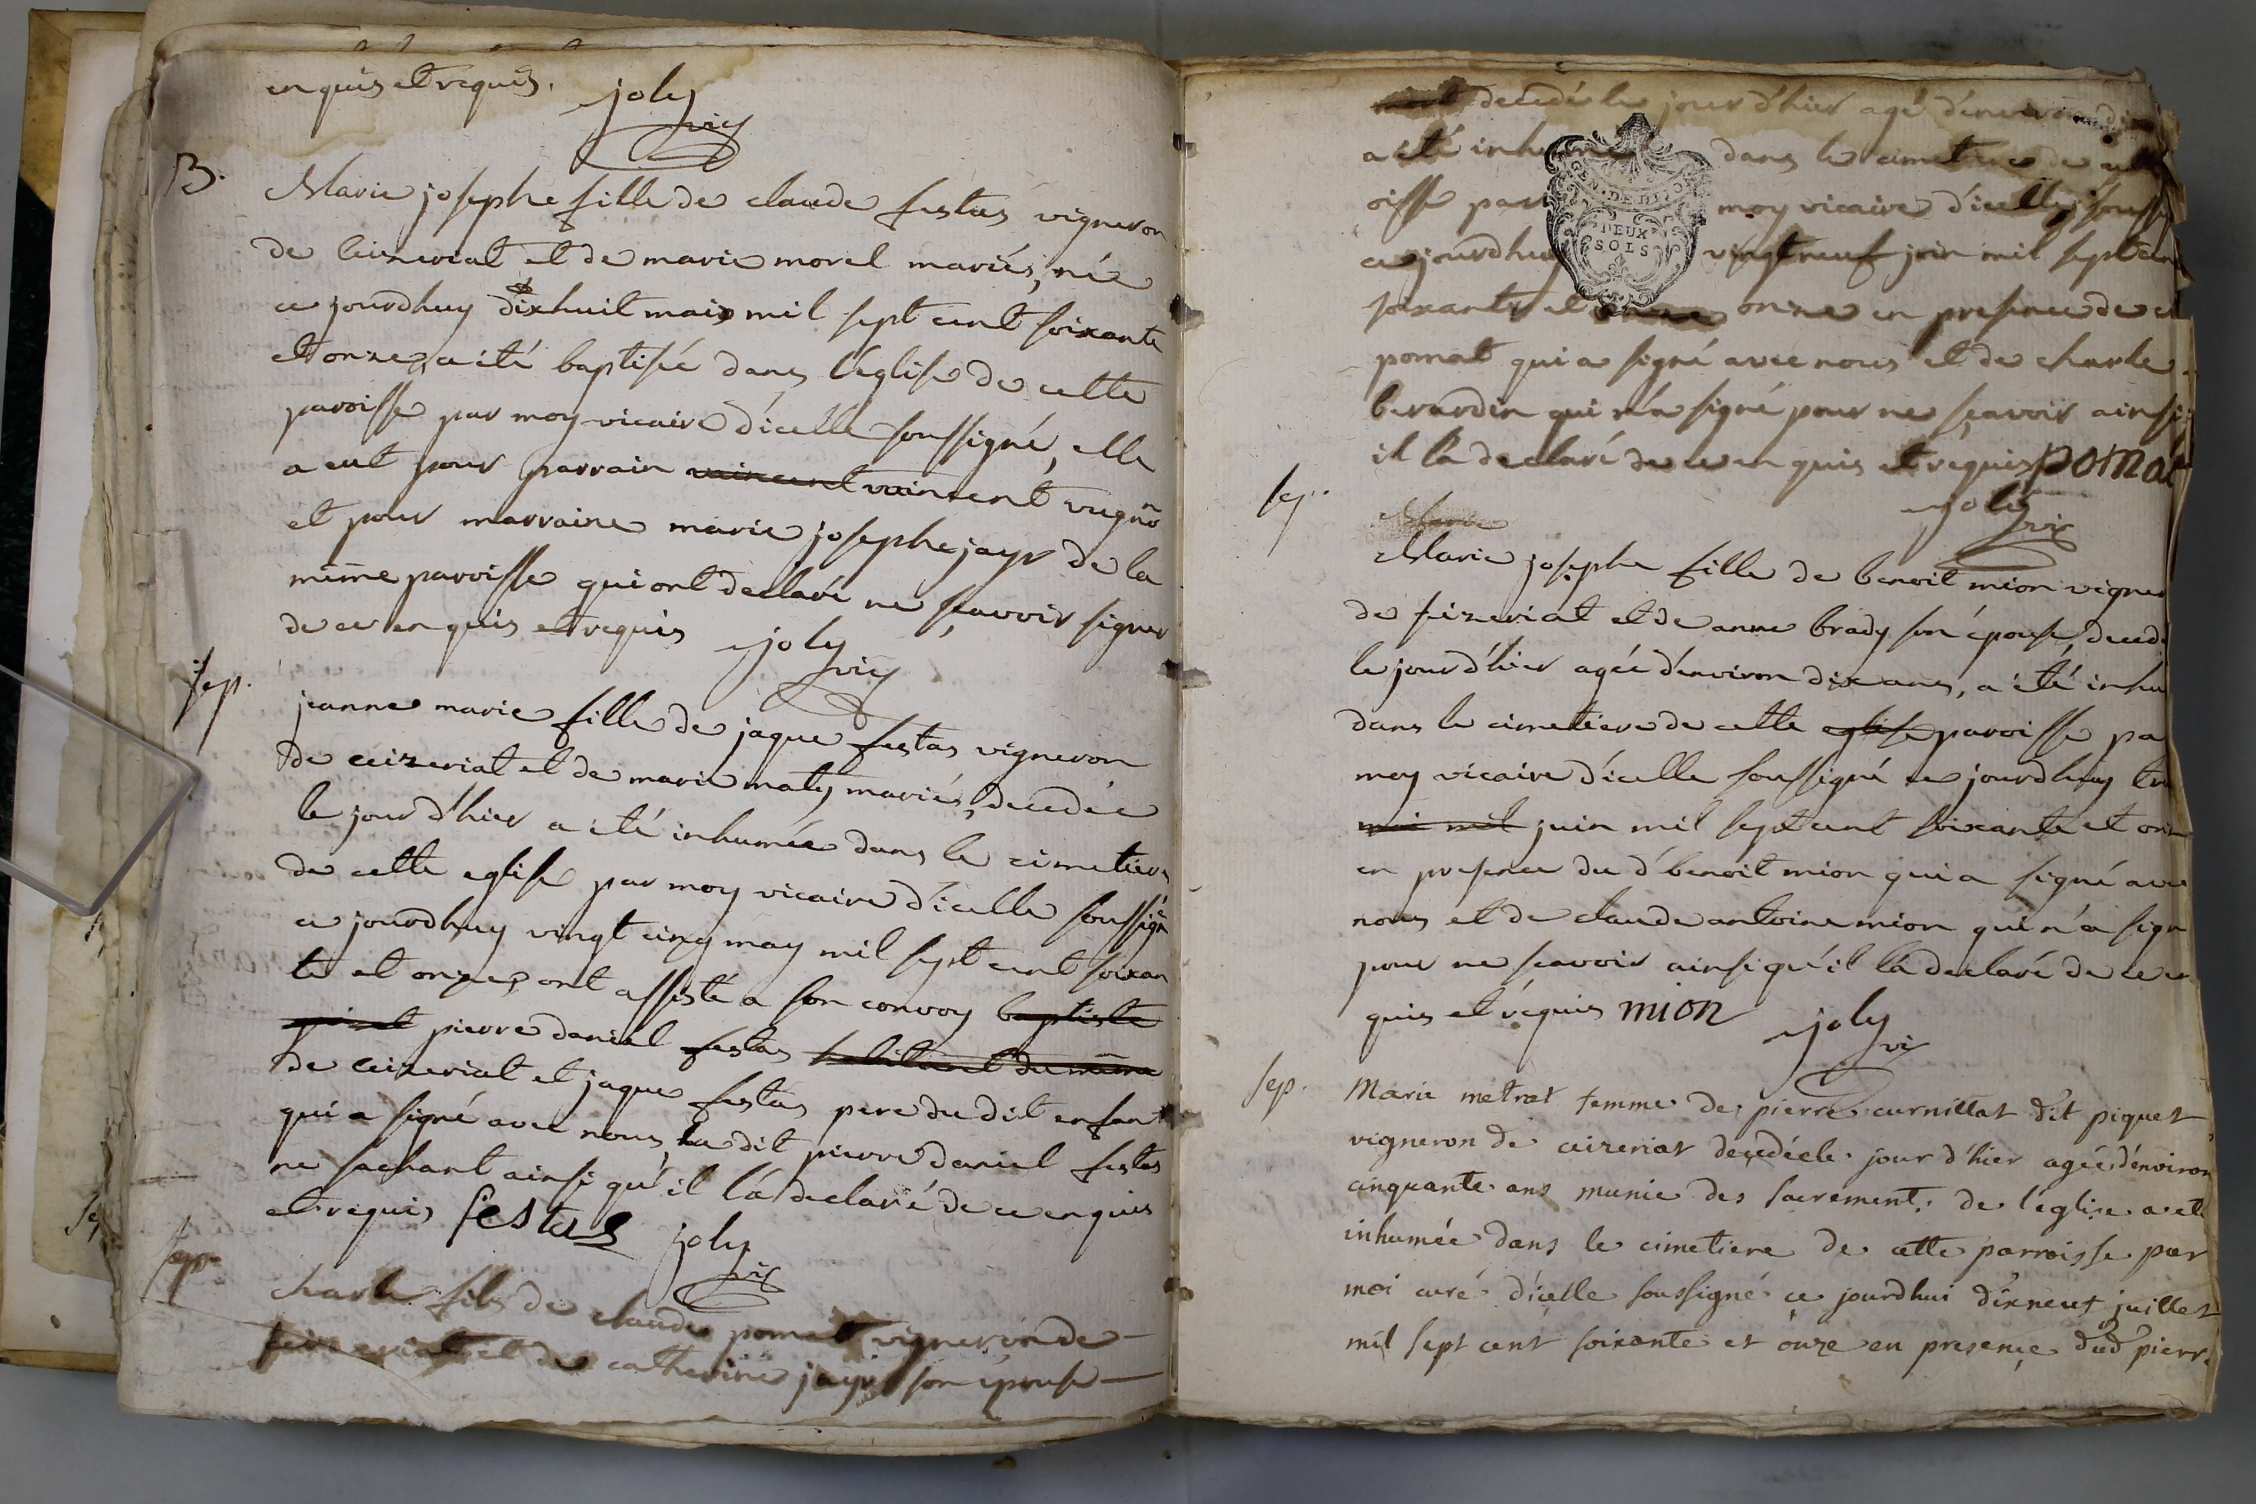 enquis et requis. joly
vic
B.
Marie josephe fille de claude festas vigneron
de ceizeriat et de marie morel mariés, née
ce jourdhuy dixhuit mais mil sept cent soixante
et onze, a été baptisée dans l'eglise de cette
paroisse par moy vicaire d'icelle soussigné, elle
a eut pour parrain vaincent vaincent vugno
et pour marraine marie josephe jayr de la
même paroisse qui ont declaré ne sçavoir signer
de ce enquis et requis joly
vic
sep.
jeanne marie fille de jaque festas vigneron
de ceizeriat et de marie maty mariés, decedée
le jour d'hier a été inhumée dans le cimetiere
de cette eglise par moy vicaire d'icelle soussigné
ce jourdhuy vingt cinq may mil sept cent soixan
te et onze, ont assisté a son convoy baptiste
pierre daniel festas habitant du même
de ceizeriat et jaque festas pere du dit enfant
qui a signé avec nous, le dit pierre daniel festas
ne sachant ainsi qu'il l'a declaré de ce enquis
et requis festas joly
vic
sep.
charle fils de claude pomat vigneron de
ceizeriat et de catherine jayr son épouse
decedé le jour d'hier agé d'environ
a été inhumé dans le cimetiere de
oisse par moy vicaire d'icelle souss
ce jourdhuy vingt neuf juin mil sept cen
soixante et onze en presence de
pomat qui a signé avec nous et de charle
berardin qui n'a signé pour ne sçavoir ainsi
il l'a declaré de ce enquis et requis pomat
joly
vic
GEN. DE DIJON
DEUX
SOLS
sep.
Marie
Marie josephe fille de benoit mion vigner
de seizeriat et de anne brady son épouse, deced
le jour d'hier agée d'environ dix ans, a été inhu
dans le cimetiere de cette eglise paroisse pa
moy vicaire d'icelle soussigné ce jourdhuy tre
mai mil juin mil sept cent soixante et onz
en presence du d. benoit mion qui a signé avec
nous et de claude antoine mion qui n'a sign
pour ne scavoir ainsi qu'il l'a declaré de ce en
quis et requis mion joly
vic
sep.
Marie metrat femme de pierre curnillat dit piquet
vigneron de ceizeriat decedée le jour d'hier agée d'environ
cinquante ans munie des sacrements de l'eglise a eté
inhumée dans le cimetiere de cette parroisse par
moi curé d'icelle soussigné ce jourdhui dixneuf juillet
mil sept cent soixante et onze en presence dud pierre